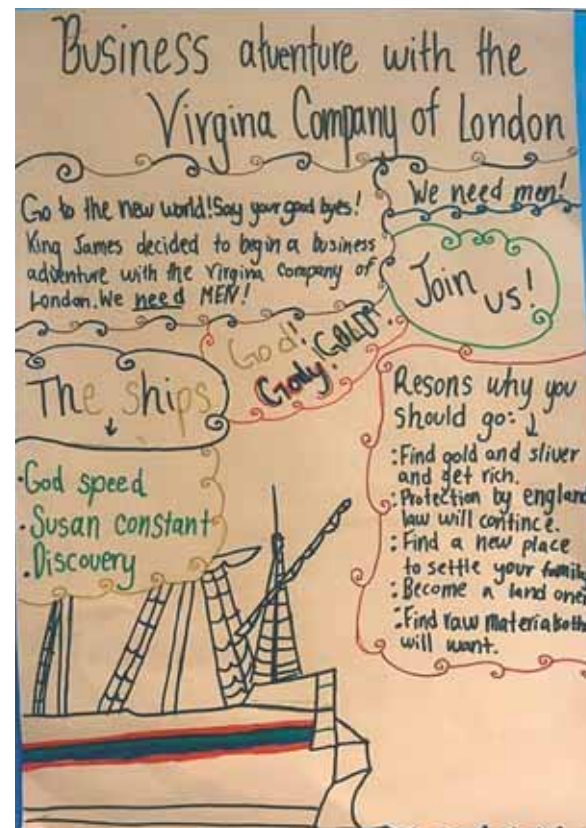 Business atventure with the
Virgina Company of London
Go to the new world! Say your good byes!
King James decided to begin a business
adventure with the Virgina Company of
London. We need MEN!
We need men!
Join
us!
God! Gody! GOLD!
The ships
·God speed
·Susan constant
·Discovery
Resons why you
should go:
:Find gold and sliver
and get rich.
:Protection by england
law will contince.
:Find a new place
to settle your family
:Become a land oner
:Find raw materials
will want.